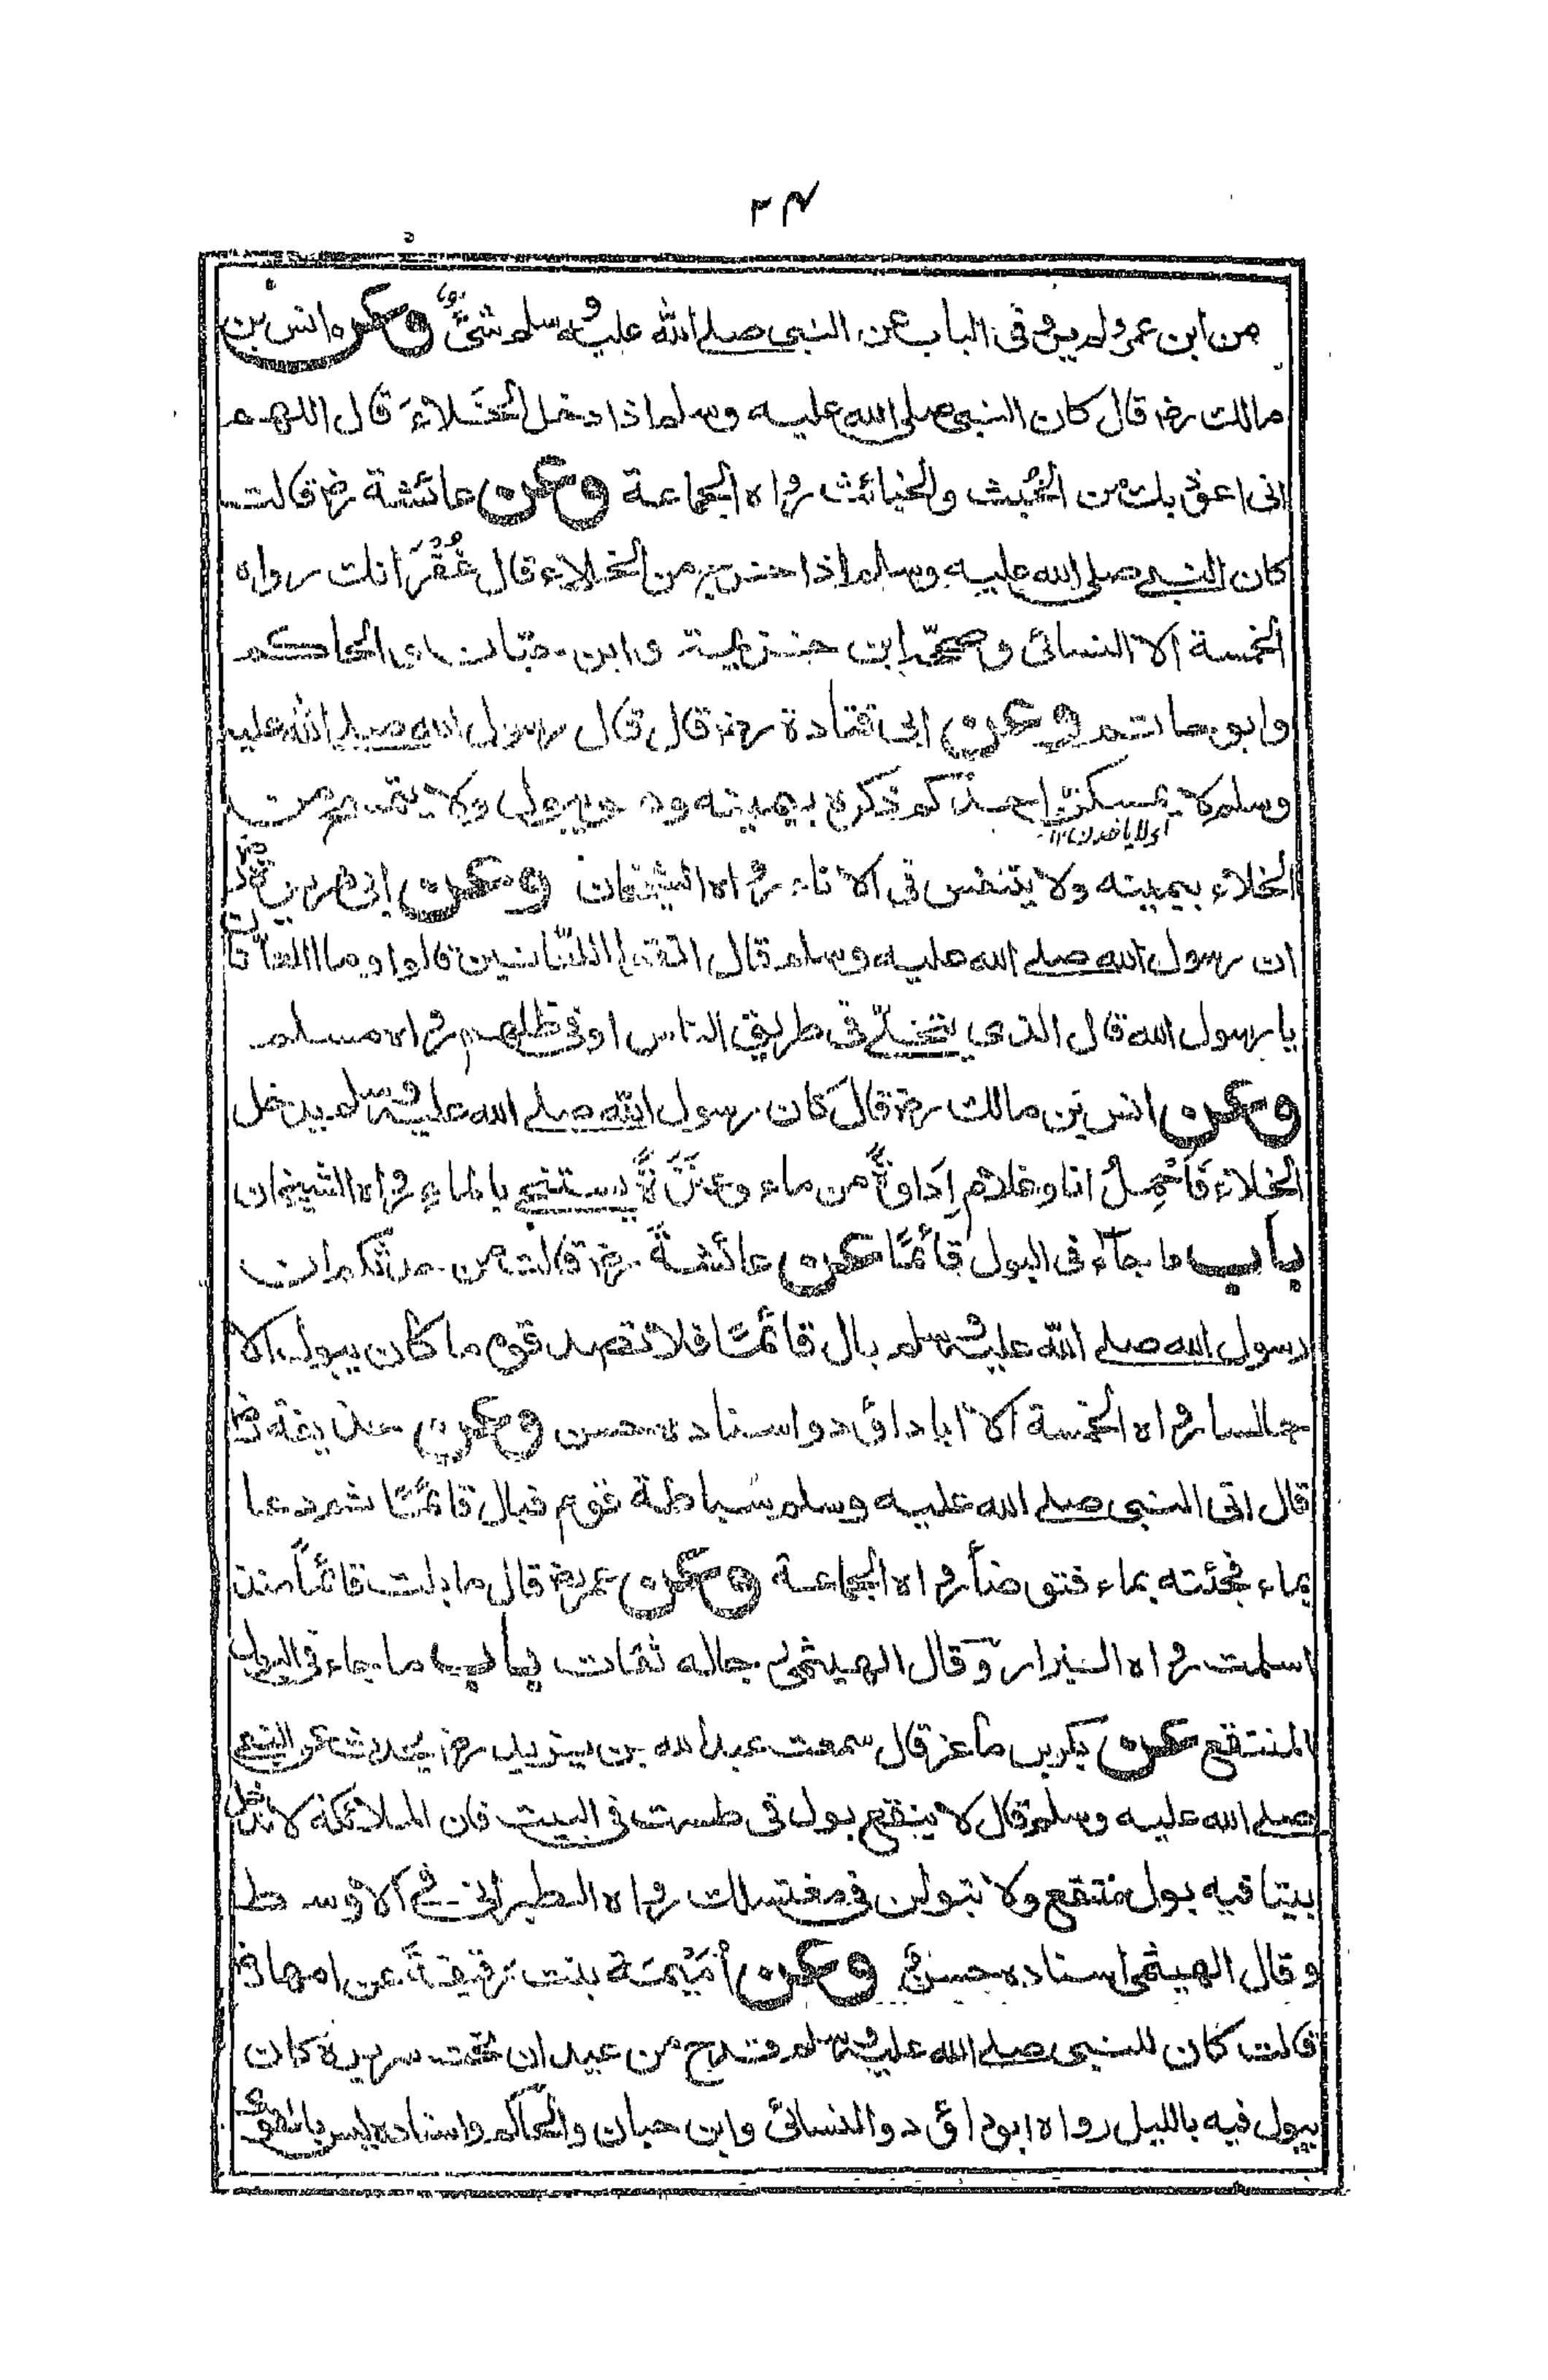 ٢٤
من ابن عمر ولم يرو فى الباب عن النبى صلے الله عليه وسلم شئ وعن انس بن
مالك رض قال كان النبى صلى الله عليه وسلم اذا دخل الخَلاءَ قال اللهم
انى اعوذ بك من الخُبث والخبائث رواه الجماعة وعن عائشة رض قالت
كان النبى صلى الله عليه وسلم اذا خرج من الخلاء قال غُفْرَانك رواه
الخمسة الا النسائى وصححه ابن خزيمة وابن حبّان والحاكم
وابو حاتم وعن ابى قتادة رض قال قال رسول الله صلے الله عليه
وسلم لا يمسكنّ احدُكم ذكره بيمينه وهو يبول ولا يتمسح من
اى لا ياخذن ١٢
الخلاء بيمينه ولا يتنفس فى الاناء رواه الشيخان وعن ابى هريرة رض
ان رسول الله صلے الله عليه وسلم قال اتقوا اللعّانين قالوا وما اللعّانان
يا رسول الله قال الذى يتخلّے فى طريق الناس او فى ظلهم رواه مسلم
وعن انس بن مالك رض قال كان رسول الله صلے الله عليه وسلم يدخل
الخلاءَ فَاَحْمِلُ انا وغلام اِدَاوةً من ماء وعَنَزَةً يستنجے بالماء رواه الشيخان
باب ما جاء فى البول قائمًا عن عائشة رض قالت من حدثكم ان
رسول الله صلے الله عليه وسلم بال قائمًا فلا تصدقوه ما كان يبول الا
جالسا رواه الخمسة الا ابا داؤد واسناده حسن وعن حذيفة رض
قال اتى النبى صلے الله عليه وسلم سُباطة قوم فبال قائمًا ثم دعا
بماء فجئته بماء فتوضأ رواه الجماعة وعن عمر رض قال ما بلت قائمًا منذ
اسلمت رواه البزار وقال الهيثمى رجاله ثقات باب ما جاء فى البول
المنتقع عن بكر بن ماعز قال سمعت عبد الله بن يزيد رض يحدث عن النبى
صلے الله عليه وسلم قال لا ينقع بول فى طست فى البيت فان الملائكة لا تدخل
بيتا فيه بول منتقع ولا تبولن فى مغتسلك رواه الطبرانى فے الاوسط
وقال الهيثمى اسناده حسن وعن اُمَيْمَة بنت رقيقة عن امها رض
قالت كان للنبى صلے الله عليه وسلم قدح من عيدان تحت سريره كان
يبول فيه بالليل رواه ابوداؤد والنسائى وابن حبان والحاكم واسناده ليس بالقوى